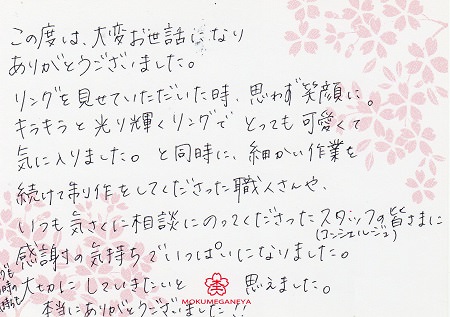 この度は、大変お世話になり
ありがとうございました。
リングを見せていただいた時、思わず笑顔に。
キラキラと光り輝くリングで とっても可愛くて
気に入りました。と同時に、細かい作業を
続けて制作をしてくださった職人さんや、
いつも気さくに相談にのってくださったスタッフの皆さまに
(コンシェルジュ)
感謝の気持ちでいっぱいになりました。
大切にしていきたいと 思えました。
本当にありがとうございました!!
MOKUMEGANEYA